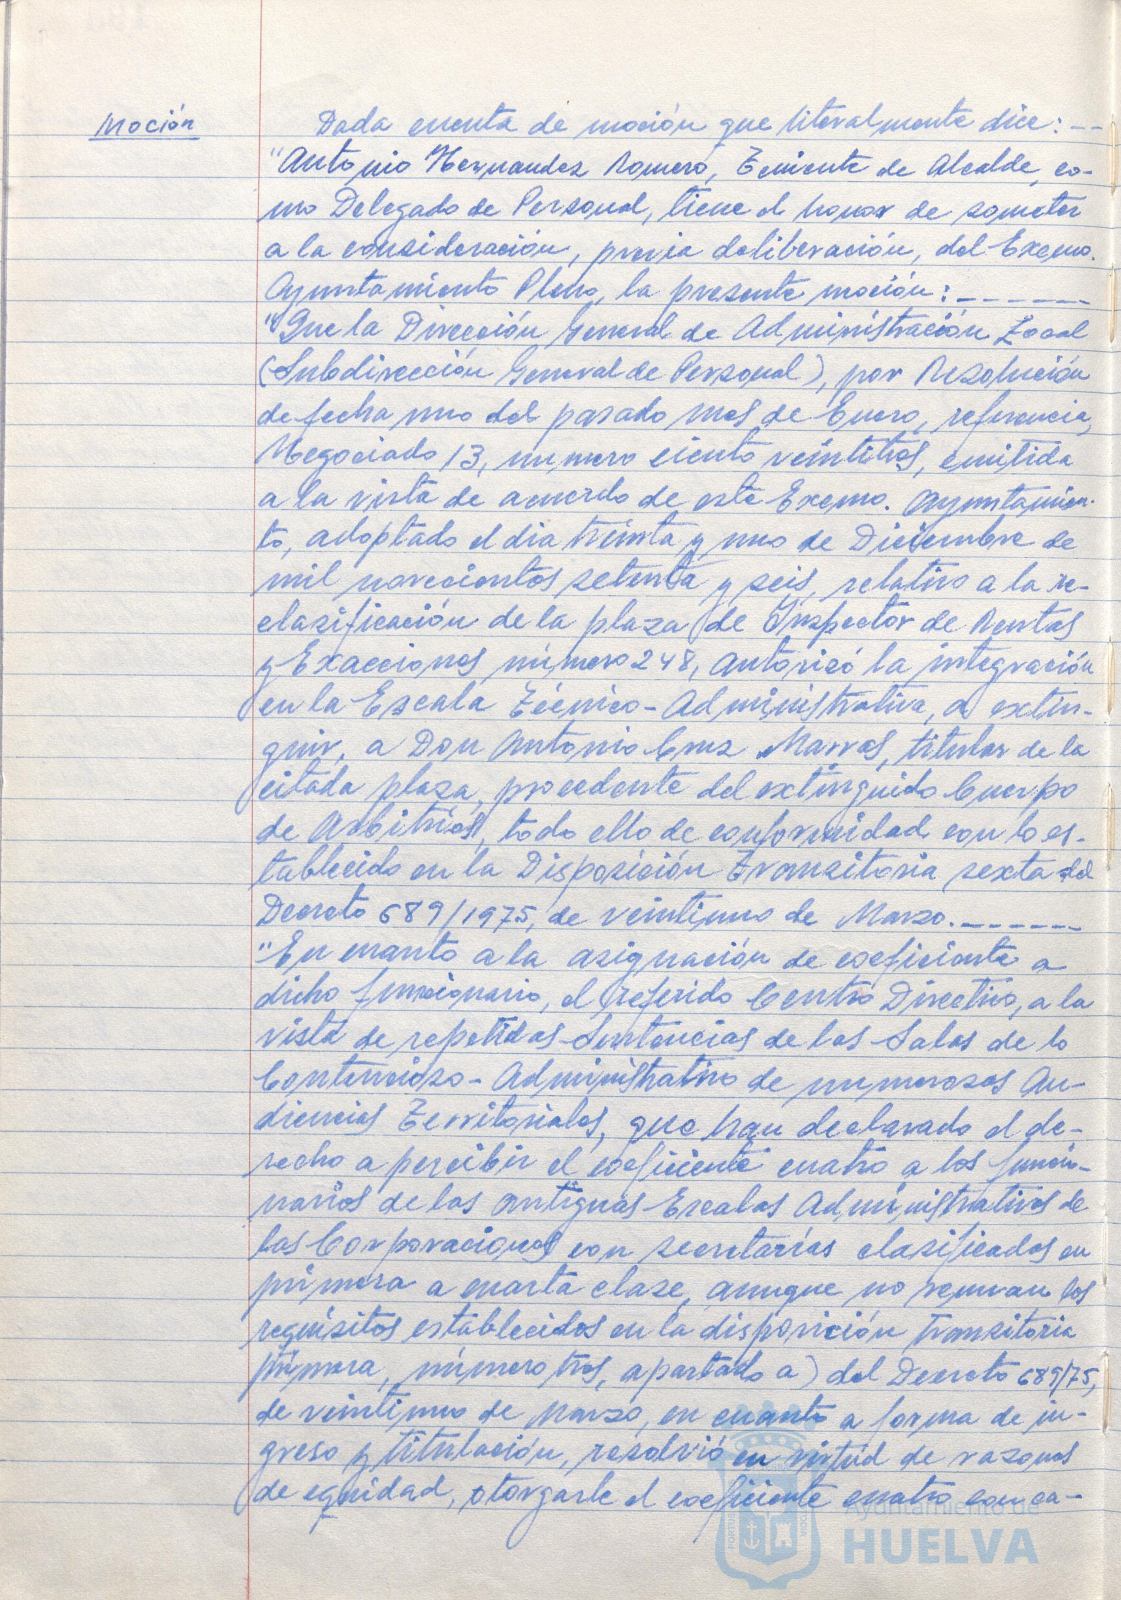 Moción
Dada cuenta de moción que literalmente dice: --
"Antonio Hernandez Romero, Teniente de Alcalde, co-
mo Delegado de Personal, tiene el honor de someter
a la consideración, previa deliberación, del Excmo.
Ayuntamiento Pleno, la presente moción: ------
"Que la Dirección General de Administración Local
(Subdirección General de Personal), por Resolución
de fecha uno del pasado mes de Enero, referencia,
Negociado 13, número ciento veintitrés, emitida
a la vista de acuerdo de este Excmo. Ayuntamien-
to, adoptado el dia treinta y uno de Diciembre de
mil novecientos setenta y seis, relativo a la re-
clasificación de la plaza de Inspector de Rentas
y Exacciones número 248, autorizó la integración
en la Escala Técnico-Administrativa, a extin-
guir, a Don Antonio Cruz Marros, titular de la
citada plaza, procedente del extinguido Cuerpo
de Arbitrios, todo ello de conformidad con lo es-
tablecido en la Disposición Transitoria sexta del
Decreto 689/1975, de veintiuno de Marzo. ------
"En cuanto a la asignación de coeficiente a
dicho funcionario, el referido Centro Directivo, a la
vista de repetidas Sentencias de las Salas de lo
Contencioso-Administrativo de numerosas Au-
diencias Territoriales, que han declarado el de-
recho a percibir el coeficiente cuatro a los funcio-
narios de las antiguas Escalas Administrativas de
las Corporaciones con secretarías clasificadas en
primera a cuarta clase, aunque no reunan los
requisitos establecidos en la disposición transitoria
primera, número tres, apartado a) del Decreto 689/75,
de veintiuno de Marzo, en cuanto a forma de in-
greso y titulación, resolvió en virtud de razones
de equidad, otorgarle el coeficiente cuatro con ca-
Ayuntamiento de
HUELVA